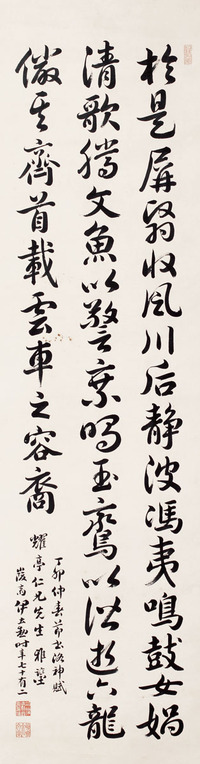 於是屏翳收風川后静波馮夷鳴鼓女媧
清歌騰文魚以警乘鳴玉鸞以偕逝六龍
儼其齊首載雲車之容裔
丁卯仲春節書洛神賦
耀亭仁兄先生 雅鑒
峻斋伊立勳時年七十有二